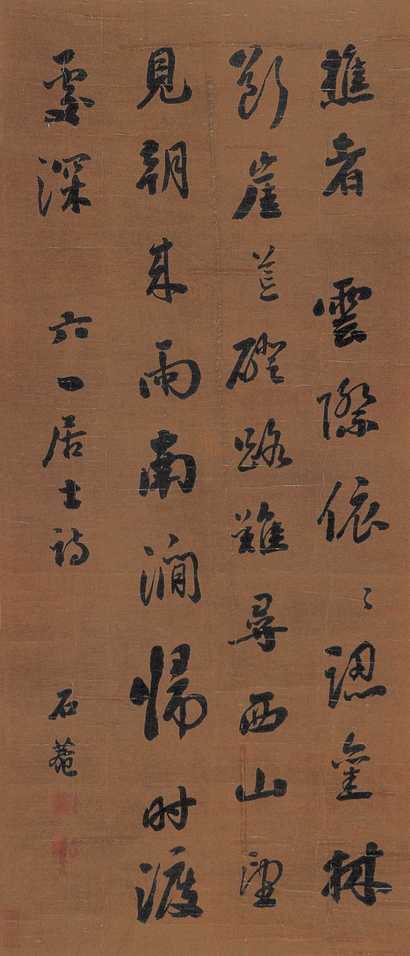 樵者 雲際依〻認舊林
斷崖荒磴路難尋西山望
見朝來雨南澗歸時渡
處深 六一居士詩 石菴